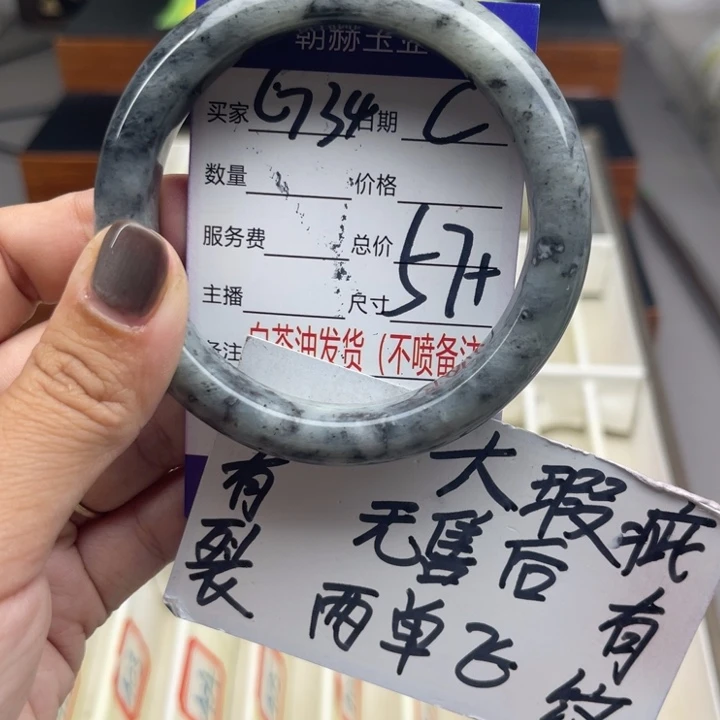 朝赫玉业
买家 G734 日期 C
数量 价格
服务费 总价
主播 尺寸 57+
备注 白茶油发货（不喷备注
有裂
大瑕疵
无售后
有纹
两单飞